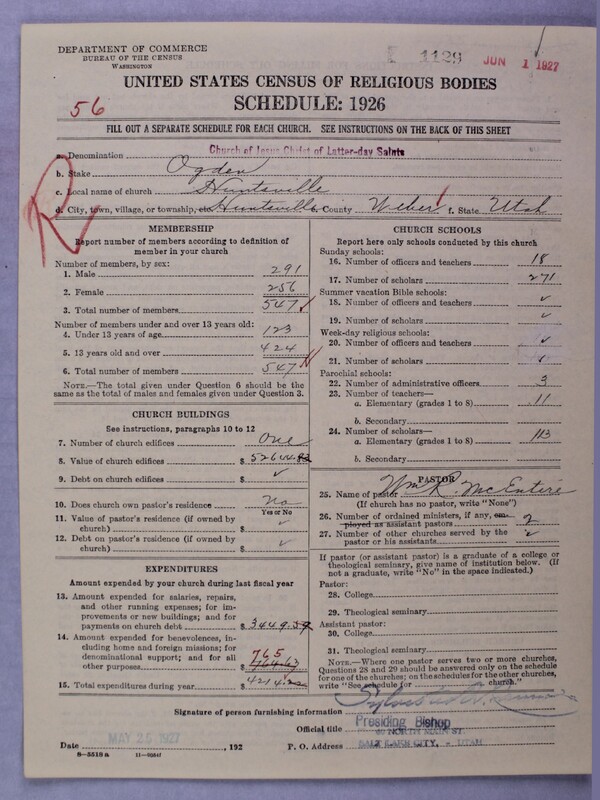 DEPARTMENT OF COMMERCE
BUREAU OF THE CENSUS
WASHINGTON
1129 JUN 1 1927
UNITED STATES CENSUS OF RELIGIOUS BODIES
SCHEDULE: 1926
56
FILL OUT A SEPARATE SCHEDULE FOR EACH CHURCH. SEE INSTRUCTIONS ON THE BACK OF THIS SHEET
a. Denomination Church of Jesus Christ of Latter-day Saints
b. Stake Ogden
c. Local name of church Huntsville
d. City, town, village, or township, etc. Huntsville County Weber f. State Utah
R
MEMBERSHIP
Report number of members according to definition of
member in your church
Number of members, by sex:
1. Male 291
2. Female 256
3. Total number of members 547
Number of members under and over 13 years old:
4. Under 13 years of age 123
5. 13 years old and over 424
6. Total number of members 547
NOTE.—The total given under Question 6 should be the
same as the total of males and females given under Question 3.
CHURCH BUILDINGS
See instructions, paragraphs 10 to 12
7. Number of church edifices One
8. Value of church edifices $ 52644.
9. Debt on church edifices $ ✓
10. Does church own pastor's residence? No
Yes or No
11. Value of pastor's residence (if owned by
church) $ ✓
12. Debt on pastor's residence (if owned by
church) $ ✓
EXPENDITURES
Amount expended by your church during last fiscal year
13. Amount expended for salaries, repairs,
and other running expenses; for im-
provements or new buildings; and for
payments on church debt $ 3449.59
14. Amount expended for benevolences, in-
cluding home and foreign missions; for
denominational support; and for all
other purposes $ 765 764.63
15. Total expenditures during year $ 4214.22
CHURCH SCHOOLS
Report here only schools conducted by this church
Sunday schools:
16. Number of officers and teachers 18
17. Number of scholars 271
Summer vacation Bible schools:
18. Number of officers and teachers ✓
19. Number of scholars ✓
Week-day religious schools:
20. Number of officers and teachers ✓
21. Number of scholars ✓
Parochial schools:
22. Number of administrative officers 3
23. Number of teachers—
a. Elementary (grades 1 to 8) 11
b. Secondary
24. Number of scholars—
a. Elementary (grades 1 to 8) 113
b. Secondary
PASTOR
25. Name of pastor Wm R. McEntire
(If church has no pastor, write "None")
26. Number of ordained ministers, if any, em-
ployed as assistant pastors 2
27. Number of other churches served by the
pastor or his assistants ✓
If pastor (or assistant pastor) is a graduate of a college or
theological seminary, give name of institution below. (If
not a graduate, write "No" in the space indicated.)
Pastor:
28. College
29. Theological seminary
Assistant pastor:
30. College
31. Theological seminary
NOTE.—Where one pastor serves two or more churches,
Questions 28 and 29 should be answered only on the schedule
for one of the churches; on the schedules for the other churches,
write "See schedule for church."
Signature of person furnishing information
Official title Presiding Bishop
40 NORTH MAIN ST.
Date MAY 25 1927, 192 P. O. Address SALT LAKE CITY, - UTAH
8-5518a